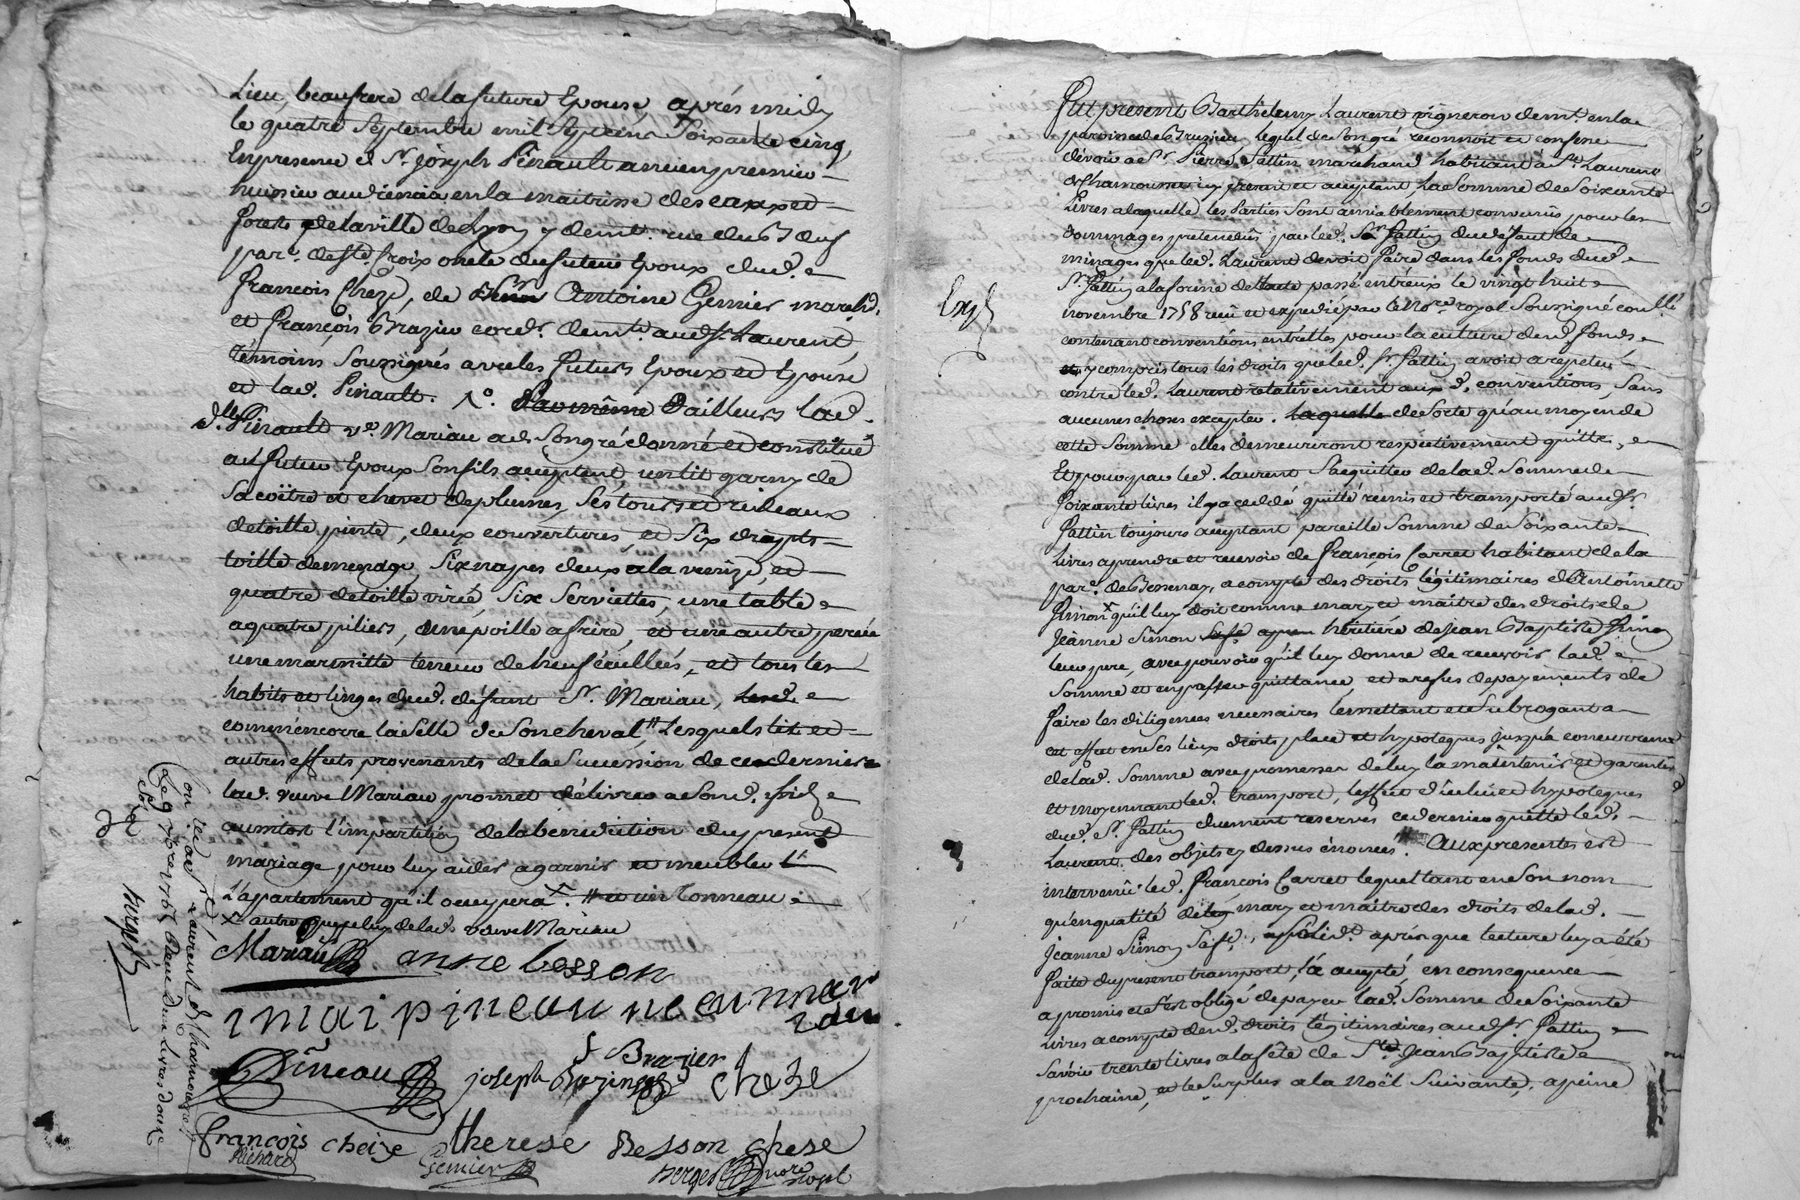 Lieu, beaufrere delafuture Epouse, aprés midy
le quatre Septembre mil Septcent Soixante cinq,
Enpresence de Sr. Joseph Pinault ancien premier
huissier audiencier en la maitrisse des eaux et
forets delaville de Lyon y demt. rue du
parr. de Ste. Croix oncle dufutur Epoux dud.
François Cheze, de Antoine Gernier march.
et François Brazier demt. aud. St. Laurent
témoins Soussignés avec les futurs Epoux et Epouse
et lad. Pinault. Dailleurs lad.
d.lle Pinault ve. Mariau a de Songré donné et constitué
aufutur Epoux Sonfils acceptant, un lit garny de
Sacoitre et chevet deplumes, Ses tours et rideaux
detoille peinte, deux couvertures, et Six drapts
toille demenage, Sixnapes deux ala venize, et
quatre detoille Six Serviettes, une table
aquatre piliers, unepoille afrire, et une autre percée
une marmitte teneur de neuf écuellées, et tous les
habits et linges dud. défunt Sr. Mariau,
comm'encorre laselle de Soncheval, Lesquels lit et
autres effets provenants dela Succession de ce dernier
lad. veuve Mariau promet délivrer a Sond. fils
aumitost l'impartition dela benediction dupresent
mariage pour luy aider agarnir et meubler
L'apartement qu'il occupera. un tonneau
autre que lad. veuve Mariau
Mariau anne besson
pineau
Pineau joseph f Brazier cheze
françois cheize therese Besson chese
Richard Gernier Berger nore. royl.
Con. led a St. Laurent de Chamousset
le 9 7bre 1765 Livres douze
berger
Exp.
Fut present Barthelemy Laurent vigneron demt. en la
paroisse de Brusieu, lequel de Son gré reconnoit et confesse
dévoir a Sr. Pierre Pattin marchand habitant a St. Laurent
de Chamousset icy présent et acceptant, la Somme de Soixante
Livres a laquelle les Parties Sont amiablement convenuës pour les
dommages pretendus par led. Sr. Pattin du défaut de
minages que led. Laurent devoit faire dans les fonds dud.
Sr. Pattin a la forme de l'acte passé entr'eux le vingt huit
novembre 1758 reçu et expedié par le nore. royal Soussigné
contenant conventions entr'elles pour la culture dend. fonds
y compris tous les droits que led. Sr. Pattin avoit a repeter
contre led. Laurent relativement aux d. conventions, Sans
aucunes choses excepter. de Sorte qu'au moyen de
cette Somme elles demeureront respectivement quitte,
Et pour par led. Laurent S'acquitter de lad. Somme de
Soixante livres il a ceddé quitté remis et transporté aud. Sr.
Pattin toujours acceptant pareille Somme de Soixante
Livres aprendre et recevoir de François Carret habitant de la
parr. de Bessenay, a compte des droits légitimaires d'Antoinette
Simon qu'il luy doit comme mary et maitre des droits de
Jeanne Simon Sa fe. héritière de Jean Baptiste Simon
leur pere, avec pouvoir qu'il luy donne de recevoir lad.
Somme et en passer quittance, et a refus de payements de
faire les diligences necessaires le mettant et Subrogant a
cet effet en Ses lieux droits place et hypoteques jusqu'a concurrence
de lad. Somme avec promesse de luy la maintenir et garentir
et moyennant led. transport, l'effet d'icelui et hypoteques
dud. Sr. Pattin duement reservés ce dernier quitte led.
Laurent des objets cy dessus énoncés. Aux presentes est
intervenû led. François Carret lequel tant en Son nom
qu'en qualité de mary et maitre des droits de lad.
Jeanne Simon Sa fe. aprés que lecture luy a été
faite du present transport, l'a accepté, en consequence
a promis et S'est obligé de payer lad. Somme de Soixante
Livres a compte dend. droits légitimaires aud. Sr. Pattin
Savoir trente livres a la fête de St. Jean Baptiste
prochaine, et le Surplus a la Noël Suivante, a peine